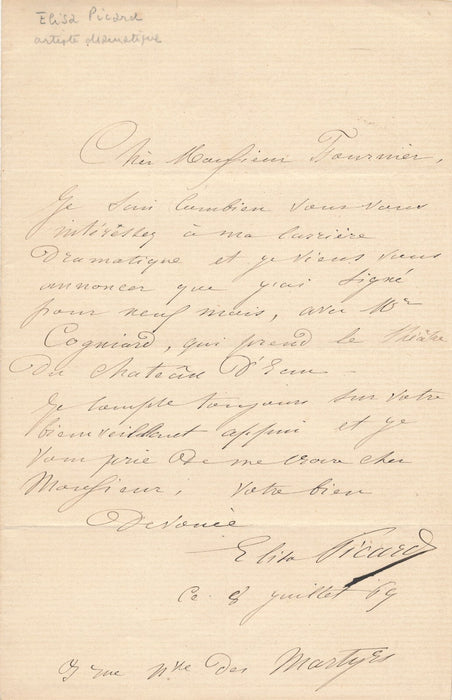 Elisa Picard
artiste dramatique
Cher Monsieur Tournier,
Je sais combien vous vous
intéressez à ma carrière
dramatique et je viens vous
annoncer que j'ai signé
pour neuf mois, avec Mr
Cogniard, qui prend le théâtre
du chateau d'Eau.
Je compte toujours sur votre
bienveillant appui et je
vous prie de me croire cher
Monsieur, votre bien
Devouée
Elisa Picard
Ce 8 juillet 69
rue Nlle des Martyrs